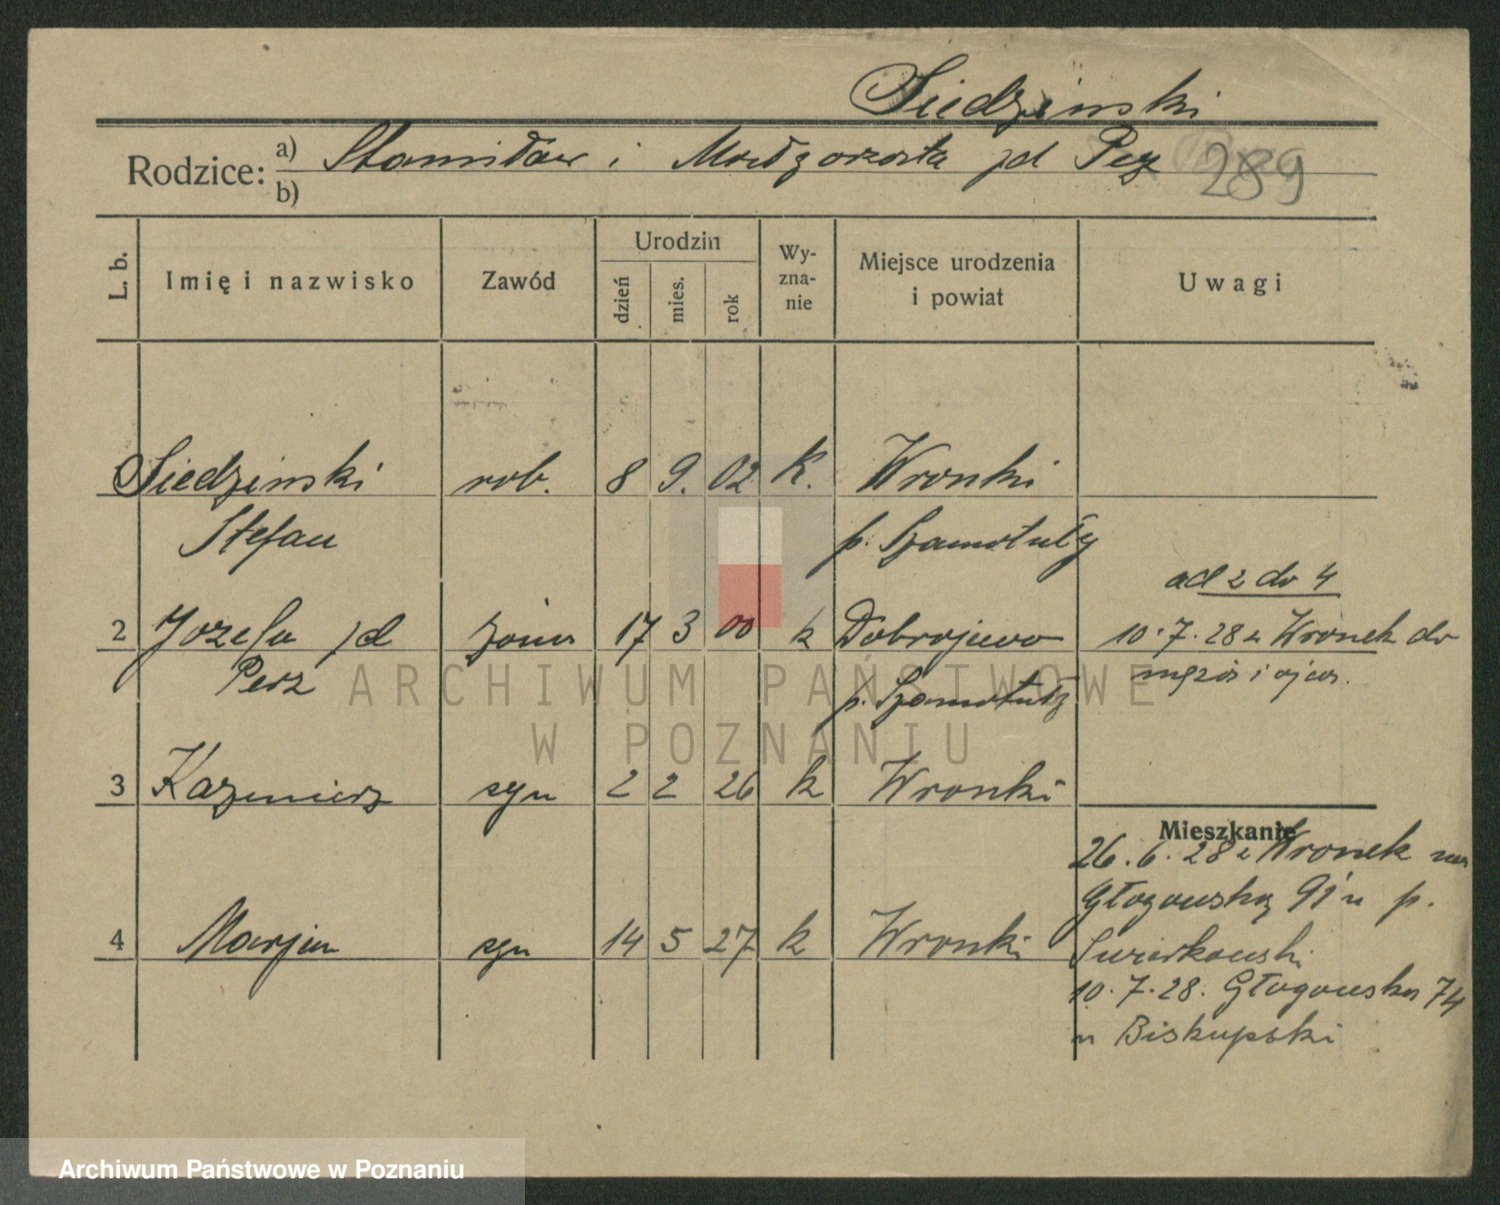 Siedziński
Rodzice: a) Stanisław i Małgorzata jd Perz 289
b)
L. b. Imię i nazwisko Zawód Urodzin dzień mies. rok Wyznanie Miejsce urodzenia i powiat Uwagi
Siedzinski rob. 8 9. 02 K. Wronki
Stefan p. Szamotuły
ad 2 do 4
2 Jozefa jd żona 17 3 00 k Dobrojewo 10.7.28 z Wronek do
Perz p. Szamotuły męża i ojca.
3 Kazimierz syn 2 2 26 k Wronki
Mieszkanie
26.6.28 z Wronek na
Głogowską 91 u p.
4 Marjan syn 14 5 27 k Wronki
10.7.28. Głogowska 74
u Biskupski
ARCHIWUM PAŃSTWOWE
W POZNANIU
Archiwum Państwowe w Poznaniu